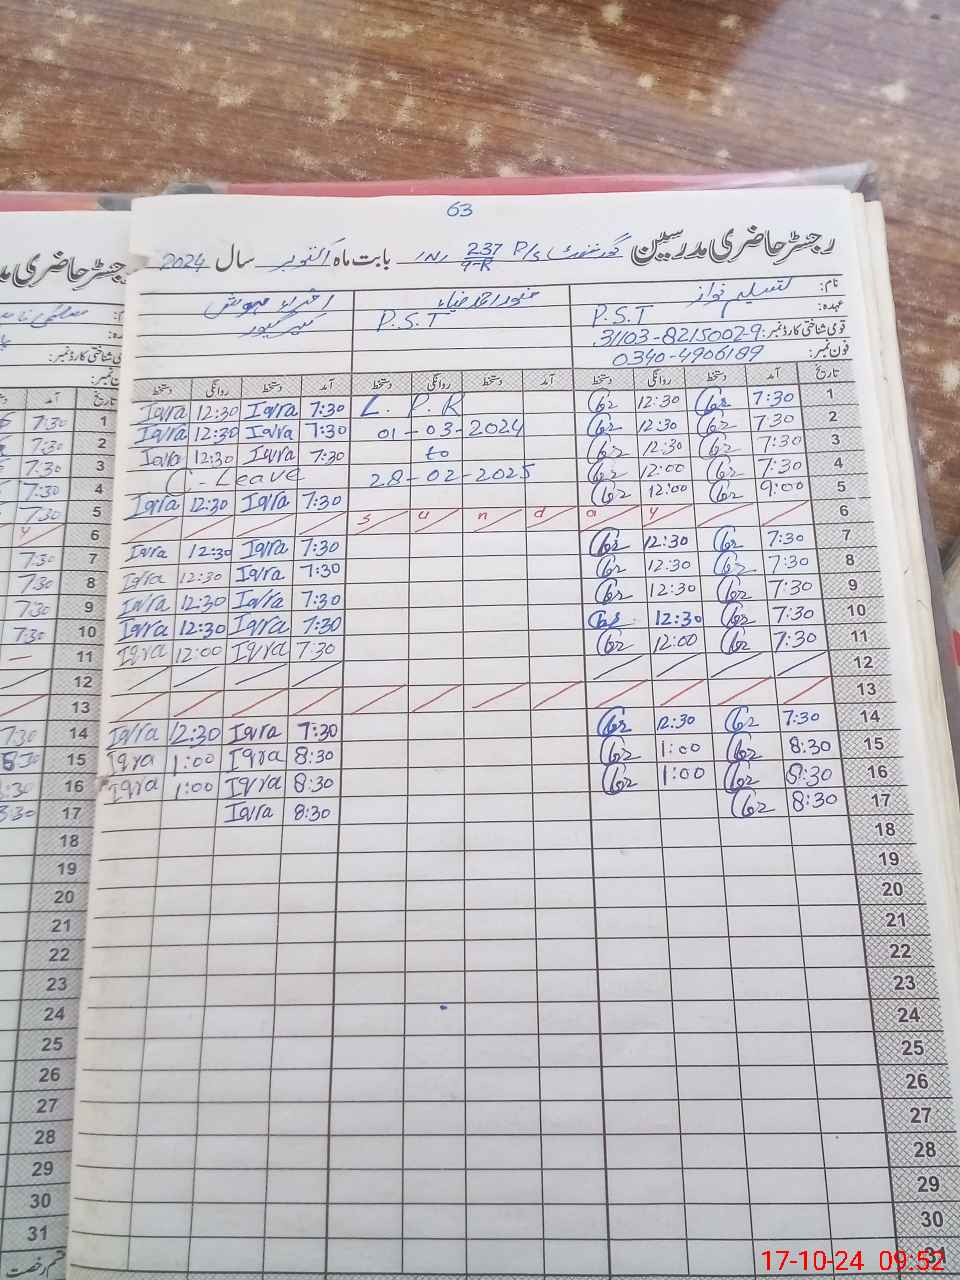 63
رجسٹر حاضری مدرسین گورنمنٹ P/S 237/9-R بابت ماہ اکتوبر سال 2024
نام:
عہدہ: P.S.T P.S.T
قومی شناختی کارڈ نمبر: 31103-8215002-9
فون نمبر: 0340-4906189
تاریخ آمد دستخط روانگی دستخط آمد دستخط روانگی دستخط آمد دستخط روانگی دستخط
1 7:30 12:30 L.P.R 7:30 Iqra 12:30 Iqra
2 7:30 12:30 01-03-2024 7:30 Iqra 12:30 Iqra
3 7:30 12:30 to 7:30 Iqra 12:30 Iqra
4 7:30 12:00 28-02-2025 C-Leave
5 9:00 12:00 7:30 Iqra 12:30 Iqra
6 Sunday
7 7:30 12:30 7:30 Iqra 12:30 Iqra
8 7:30 12:30 7:30 Iqra 12:30 Iqra
9 7:30 12:30 7:30 Iqra 12:30 Iqra
10 7:30 12:30 7:30 Iqra 12:30 Iqra
11 7:30 12:00 7:30 Iqra 12:00 Iqra
12
13
14 7:30 12:30 7:30 Iqra 12:30 Iqra
15 8:30 1:00 8:30 Iqra 1:00 Iqra
16 8:30 1:00 8:30 Iqra 1:00 Iqra
17 8:30 8:30 Iqra
18
19
20
21
22
23
24
25
26
27
28
29
30
31
رجسٹر حاضری
تاریخ آمد
1 7:30
2 7:30
3 7:30
4 7:30
5 7:30
6 y
7 7:30
8 7:30
9 7:30
10 7:30
11
12
13
14 7:30
15 8:30
16 8:30
17 8:30
18
19
20
21
22
23
24
25
26
27
28
29
30
31
قسم رخصت
17-10-24 09:52